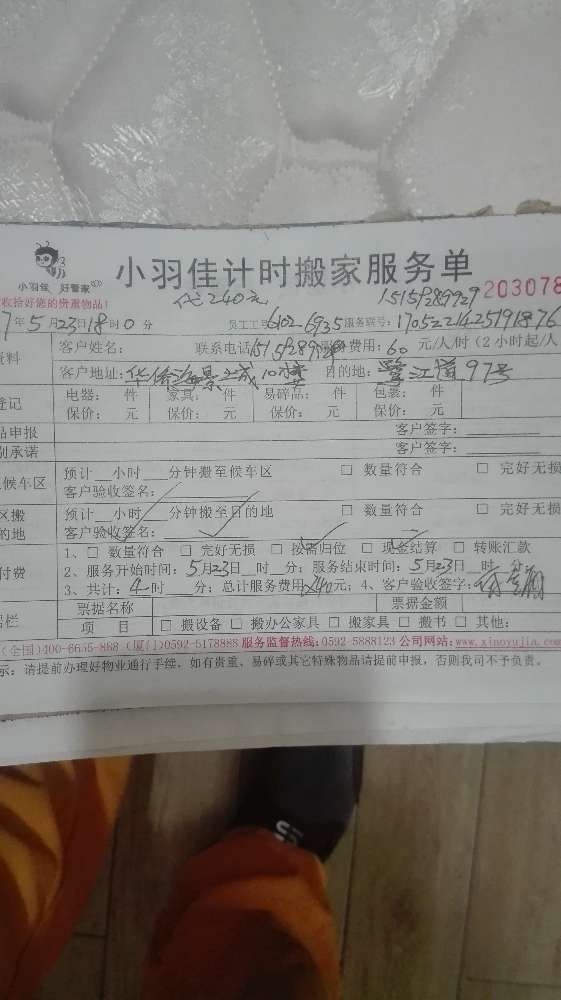 小羽佳 好管家
小羽佳计时搬家服务单
收拾好您的贵重物品!
代 240元
15159289929
203078
7年5月23日18时0分
员工工号6102-6935 服务联号:1705221425191876
资料
客户姓名: 联系电话 服务费用:60元/人/时(2小时起/人
客户地址:华侨海景城10楼 目的地:鹭江道97号
登记
电器: 件 家具: 件 易碎品: 件 包装: 件
保价: 元 保价: 元 保价: 元 保价: 元
品申报 客户签字:
别承诺 客户签字:
候车区
预计 小时 分钟搬至候车区 □ 数量符合 □ 完好无损
客户验收签名:
区搬
的地
预计 小时 分钟搬至目的地 □ 数量符合 □ 完好无损
客户验收签名:
付费
1、□ 数量符合 □ 完好无损 □ 按需归位 □ 现金结算 □ 转账汇款
2、服务开始时间:5月23日 时 分;服务结束时间:5月23日 时 分
3、共计:4时 分;总计服务费用240元;4、客户验收签字:
留栏
票据名称 票据金额
项 目 □ 搬设备 □ 搬办公家具 □ 搬家具 □ 搬书 □ 其他:
(全国)400-6655-888 (厦门)0592-5178888 服务监督热线:0592-5888123 公司网站:www.xinoyujia.com
示:请提前办理好物业通行手续,如有贵重、易碎或其它特殊物品请提前申报,否则我司不予负责。